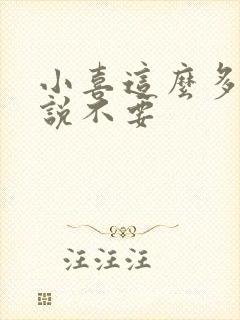 小喜這麼多
說不要
汪汪汪